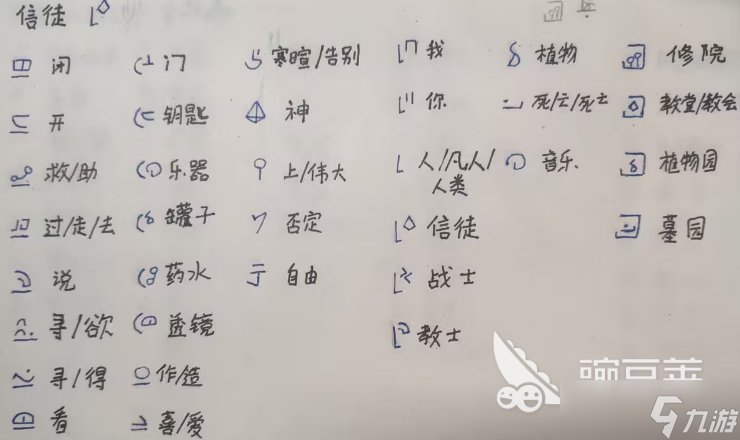 信徒
闭 门 寒暄/告别 我 植物 修院
开 钥匙 神 你 死/亡/死士 教堂/教会
救/助 乐器 上/伟大 人/凡人/人类 音乐 植物园
过/走/去 罐子 否定 信徒 墓园
说 药水 自由 战士
寻/欲 透镜 教士
寻/得 作/造
看 喜/爱
九游